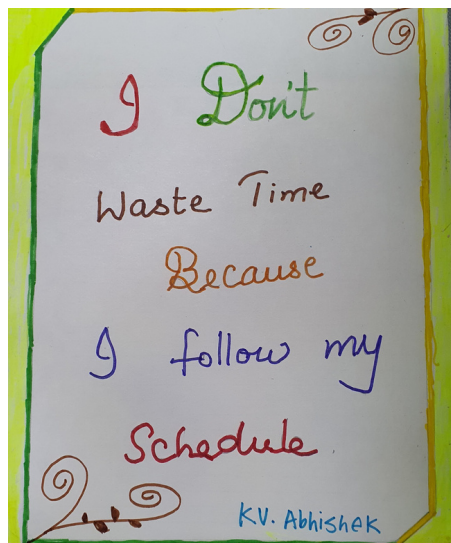 I Don't
Waste Time
Because
I follow my
Schedule
KV. Abhishek